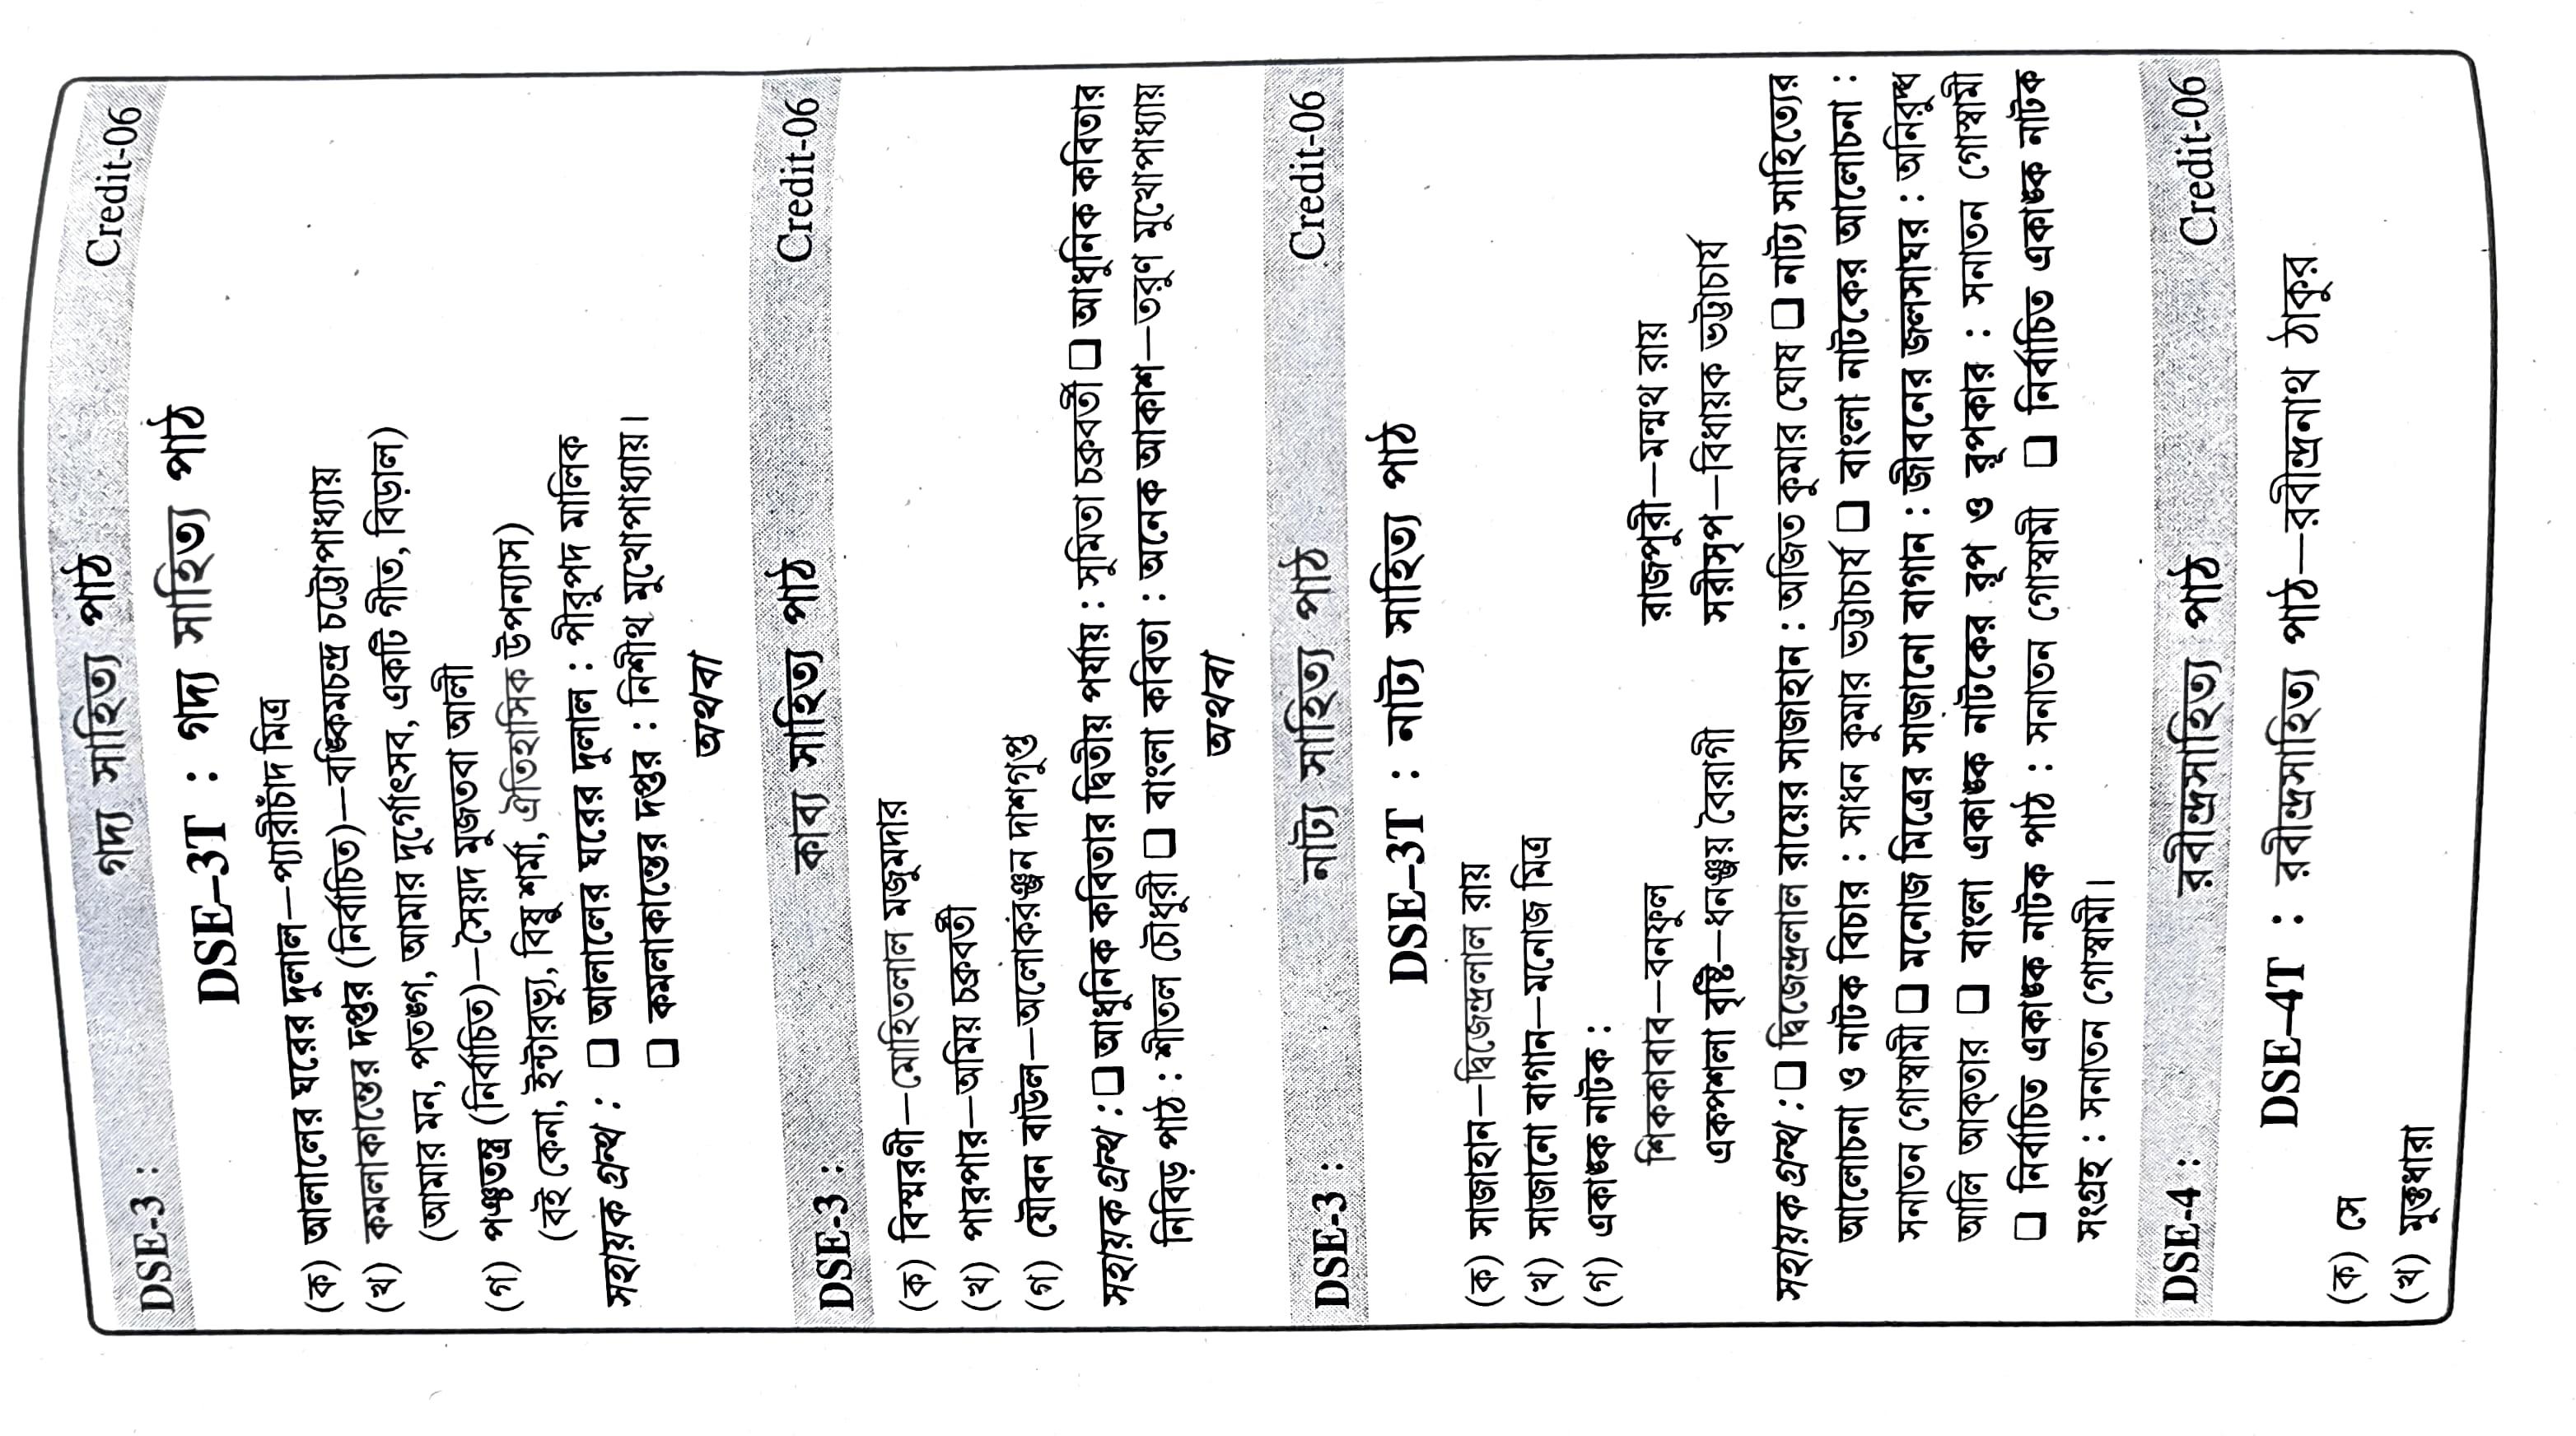 DSE-3 : গদ্য সাহিত্য পাঠ Credit-06
DSE–3T : গদ্য সাহিত্য পাঠ
(ক) আলালের ঘরের দুলাল—প্যারীচাঁদ মিত্র
(খ) কমলাকান্তের দপ্তর (নির্বাচিত)—বঙ্কিমচন্দ্র চট্টোপাধ্যায়
(আমার মন, পতঙ্গ, আমার দুর্গোৎসব, একটি গীত, বিড়াল)
(গ) পঞ্চতন্ত্র (নির্বাচিত)—সৈয়দ মুজতবা আলী
(বই কেনা, ইন্টারভ্যু, বিষ্ণু শর্মা, ঐতিহাসিক উপন্যাস)
সহায়ক গ্রন্থ : ❑ আলালের ঘরের দুলাল : পীরুপদ মালিক
❑ কমলাকান্তের দপ্তর : নিশীথ মুখোপাধ্যায়।
অথবা
DSE-3 : কাব্য সাহিত্য পাঠ Credit-06
(ক) বিস্মরণী—মোহিতলাল মজুমদার
(খ) পারপার—অমিয় চক্রবর্তী
(গ) যৌবন বাউল—অলোকরঞ্জন দাশগুপ্ত
সহায়ক গ্রন্থ : ❑ আধুনিক কবিতার দ্বিতীয় পর্যায় : সুমিতা চক্রবর্তী ❑ আধুনিক কবিতার
নিবিড় পাঠ : শীতল চৌধুরী ❑ বাংলা কবিতা : অনেক আকাশ—তরুণ মুখোপাধ্যায়
অথবা
DSE-3 : নাট্য সাহিত্য পাঠ Credit-06
DSE–3T : নাট্য সাহিত্য পাঠ
(ক) সাজাহান—দ্বিজেন্দ্রলাল রায়
(খ) সাজানো বাগান—মনোজ মিত্র
(গ) একাঙ্ক নাটক :
শিককাবাব—বনফুল রাজপুরী—মন্মথ রায়
একপশলা বৃষ্টি—ধনঞ্জয় বৈরাগী সরীসৃপ—বিধায়ক ভট্টাচার্য
সহায়ক গ্রন্থ : ❑ দ্বিজেন্দ্রলাল রায়ের সাজাহান : অজিত কুমার ঘোষ ❑ নাট্য সাহিত্যের
আলোচনা ও নাটক বিচার : সাধন কুমার ভট্টাচার্য ❑ বাংলা নাটকের আলোচনা :
সনাতন গোস্বামী ❑ মনোজ মিত্রের সাজানো বাগান : জীবনের জলসাঘর : অনিরুদ্ধ
আলি আক্‌তার ❑ বাংলা একাঙ্ক নাটকের রূপ ও রূপকার : সনাতন গোস্বামী
❑ নির্বাচিত একাঙ্ক নাটক পাঠ : সনাতন গোস্বামী ❑ নির্বাচিত একাঙ্ক নাটক
সংগ্রহ : সনাতন গোস্বামী।
DSE-4 : রবীন্দ্রসাহিত্য পাঠ Credit-06
DSE–4T : রবীন্দ্রসাহিত্য পাঠ—রবীন্দ্রনাথ ঠাকুর
(ক) সে
(খ) মুক্তধারা